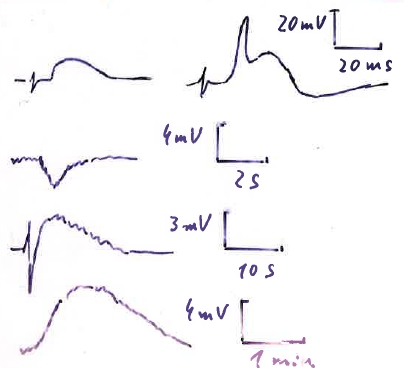 20mV
20 ms
4mV
2s
3mV
10s
4mV
1 min